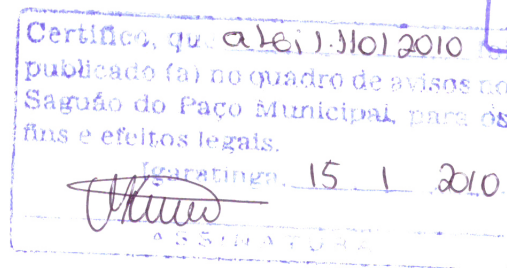 Certifico, que a Lei 1.110/2010 foi
publicado (a) no quadro de avisos no
Saguão do Paço Municipal, para os
fins e efeitos legais.
Igaratinga, 15 1 2010
ASSINATURA